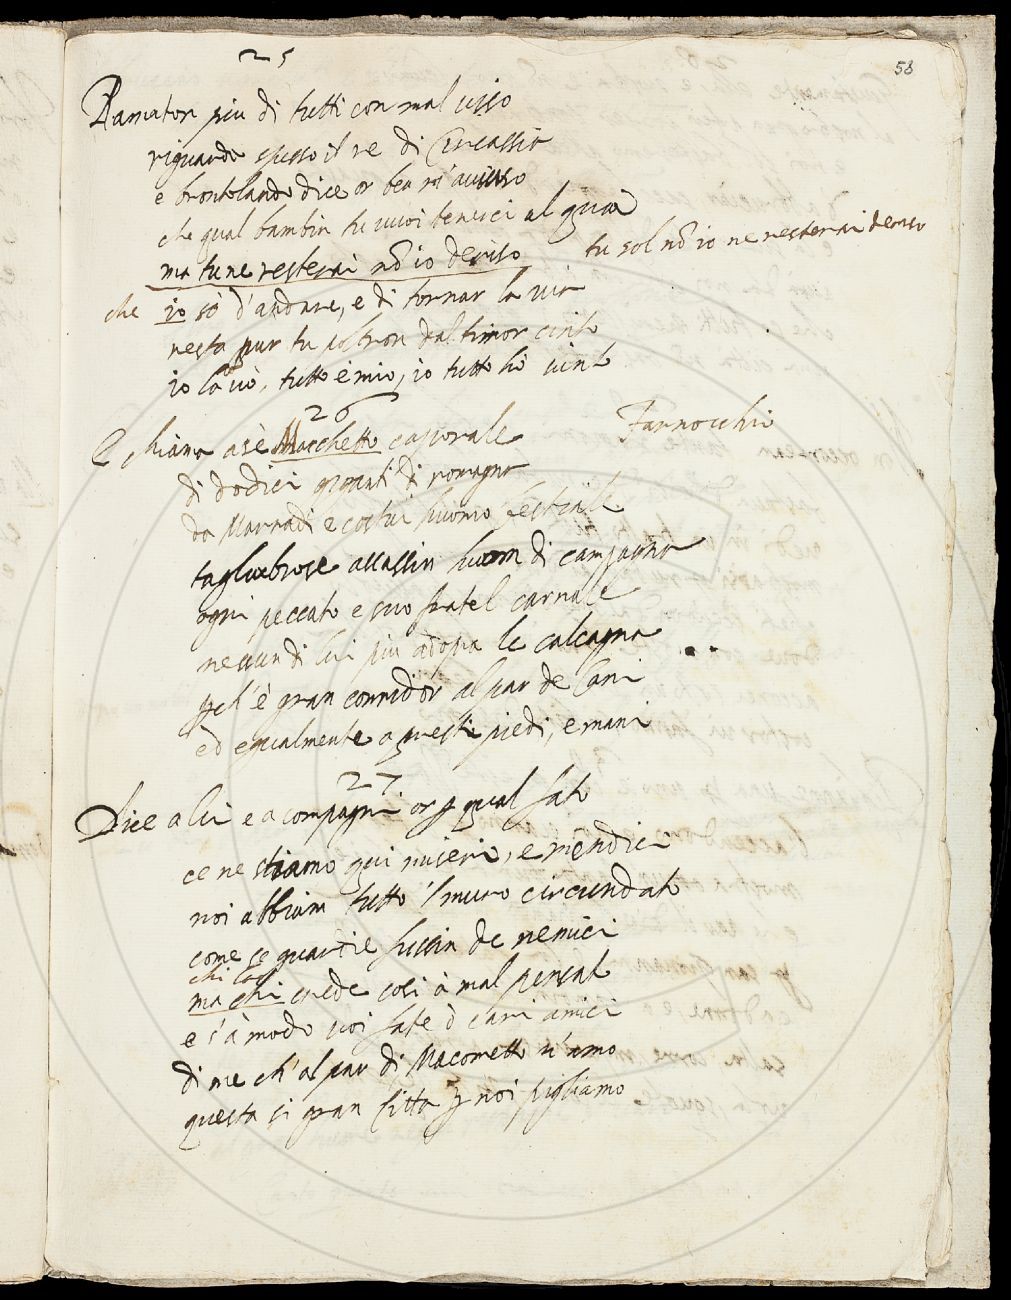 58
25
Ramator piu di tutti con mal viso
riguarda spesso il re di Circassia
e brontolando dice or ben m'avviso
che qual bambin tu vuoi tenerci al qua
ma tu ne resterai nō io deriso
tu sol nō io ne resterai deriso
che io sò d'andare, e di tornar la via
resta pur tu poltron dal timor cinto
io la vò, tutto è mio, io tutto hò vinto
26
E chiama a sè Macchetto caporale
Fannocchio
di dodici giganti di romagna
da Marradi e costui huomo bestiale
tagliaborse assassin huom di campagna
ogni peccato e suo fratel carnale
nessun di lui piu adopra le calcagna
pch'è gran corridor al par de Cani
ed egualmente a questi piedi, e mani
27
Dice a lui e a compagni or p qual fato
ce ne stiamo qui miseri, e mendici
noi abbiam tutto 'l muro circundato
come se guardie fussin de nemici
chi cosi
ma chi crede cosi à mal pensato
e s'à modo voi fate ò cari amici
di me ch'al par di Macometto v'amo
questa si gran Citta p noi pigliamo